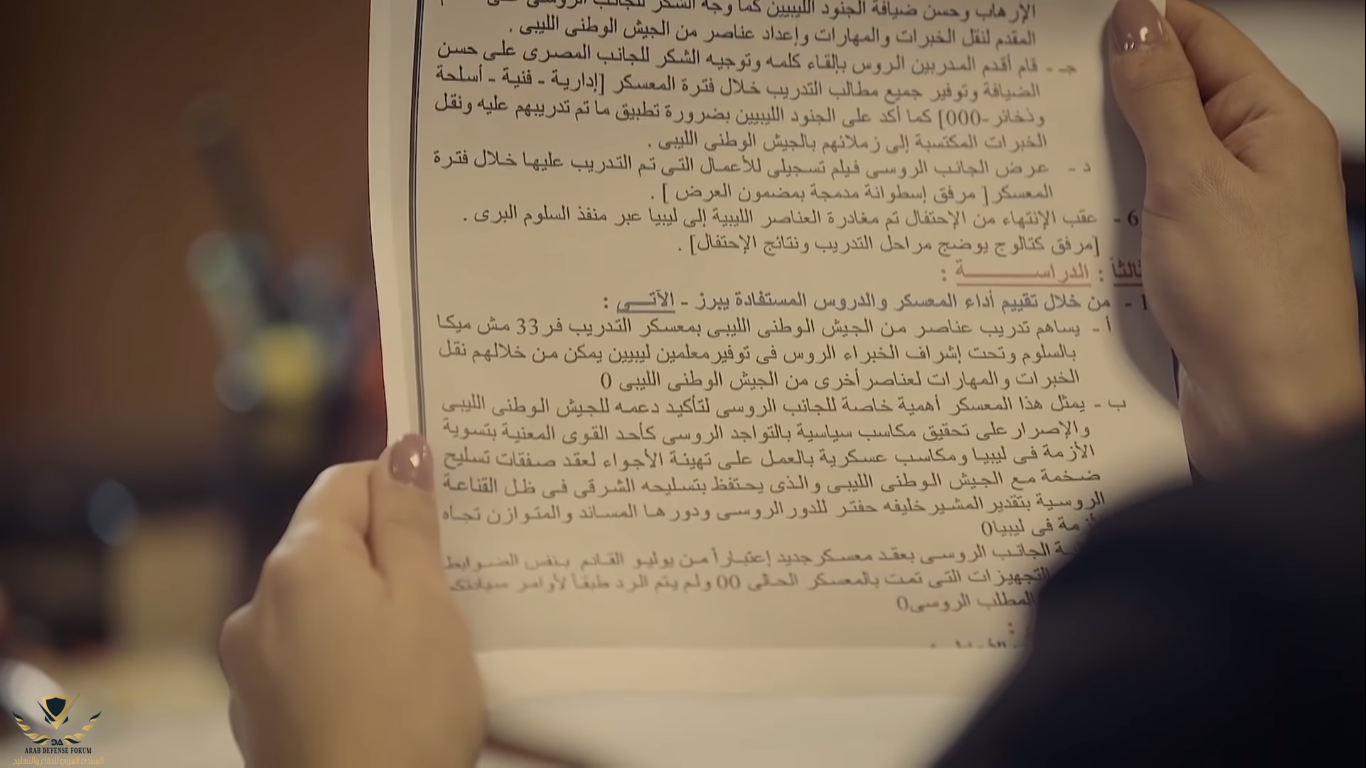 الإرهاب وحسن ضيافة الجنود الليبيين كما وجه الشكر للجانب الروسى على
المقدم لنقل الخبرات والمهارات وإعداد عناصر من الجيش الوطنى الليبى .
جـ - قام أقدم المدربين الروس بإلقاء كلمه وتوجيه الشكر للجانب المصرى على حسن
الضيافة وتوفير جميع مطالب التدريب خلال فترة المعسكر [إدارية - فنية - أسلحة
وذخائر-000] كما أكد على الجنود الليبيين بضرورة تطبيق ما تم تدريبهم عليه ونقل
الخبرات المكتسبة إلى زملائهم بالجيش الوطنى الليبى .
د - عرض الجانب الروسى فيلم تسجيلى للأعمال التى تم التدريب عليها خلال فترة
المعسكر [ مرفق إسطوانة مدمجة بمضمون العرض ] .
6 - عقب الإنتهاء من الإحتفال تم مغادرة العناصر الليبية إلى ليبيا عبر منفذ السلوم البرى .
[مرفق كتالوج يوضح مراحل التدريب ونتائج الإحتفال] .
ثالثاً : الدراســـــــة :
1 - من خلال تقييم أداء المعسكر والدروس المستفادة يبرز - الآتـــى :
أ - يساهم تدريب عناصر من الجيش الوطنى الليبى بمعسكر التدريب فر 33 مش ميكا
بالسلوم وتحت إشراف الخبراء الروس فى توفير معلمين ليبيين يمكن من خلالهم نقل
الخبرات والمهارات لعناصر أخرى من الجيش الوطنى الليبى 0
ب - يمثل هذا المعسكر أهمية خاصة للجانب الروسى لتأكيد دعمه للجيش الوطنى الليبى
والإصرار على تحقيق مكاسب سياسية بالتواجد الروسى كأحد القوى المعنية بتسوية
الأزمة فى ليبيا ومكاسب عسكرية بالعمل على تهيئة الأجواء لعقد صفقات تسليح
ضخمة مع الجيش الوطنى الليبى والذى يحتفظ بتسليحه الشرقى فى ظل القناعة
الروسية بتقدير المشير خليفه حفتر للدور الروسى ودورها المساند والمتوازن تجاه
أزمة فى ليبيا0
الجانب الروسى بعقد معسكر جديد إعتباراً من يوليو القادم بنفس الضوابط
التجهيزات التى تمت بالمعسكر الحالى 00 ولم يتم الرد طبقاً لأوامر سيادتكم
المطلب الروسى0
:
DA
ARAB DEFENSE FORUM
المنتدى العربي للدفاع والتسليح